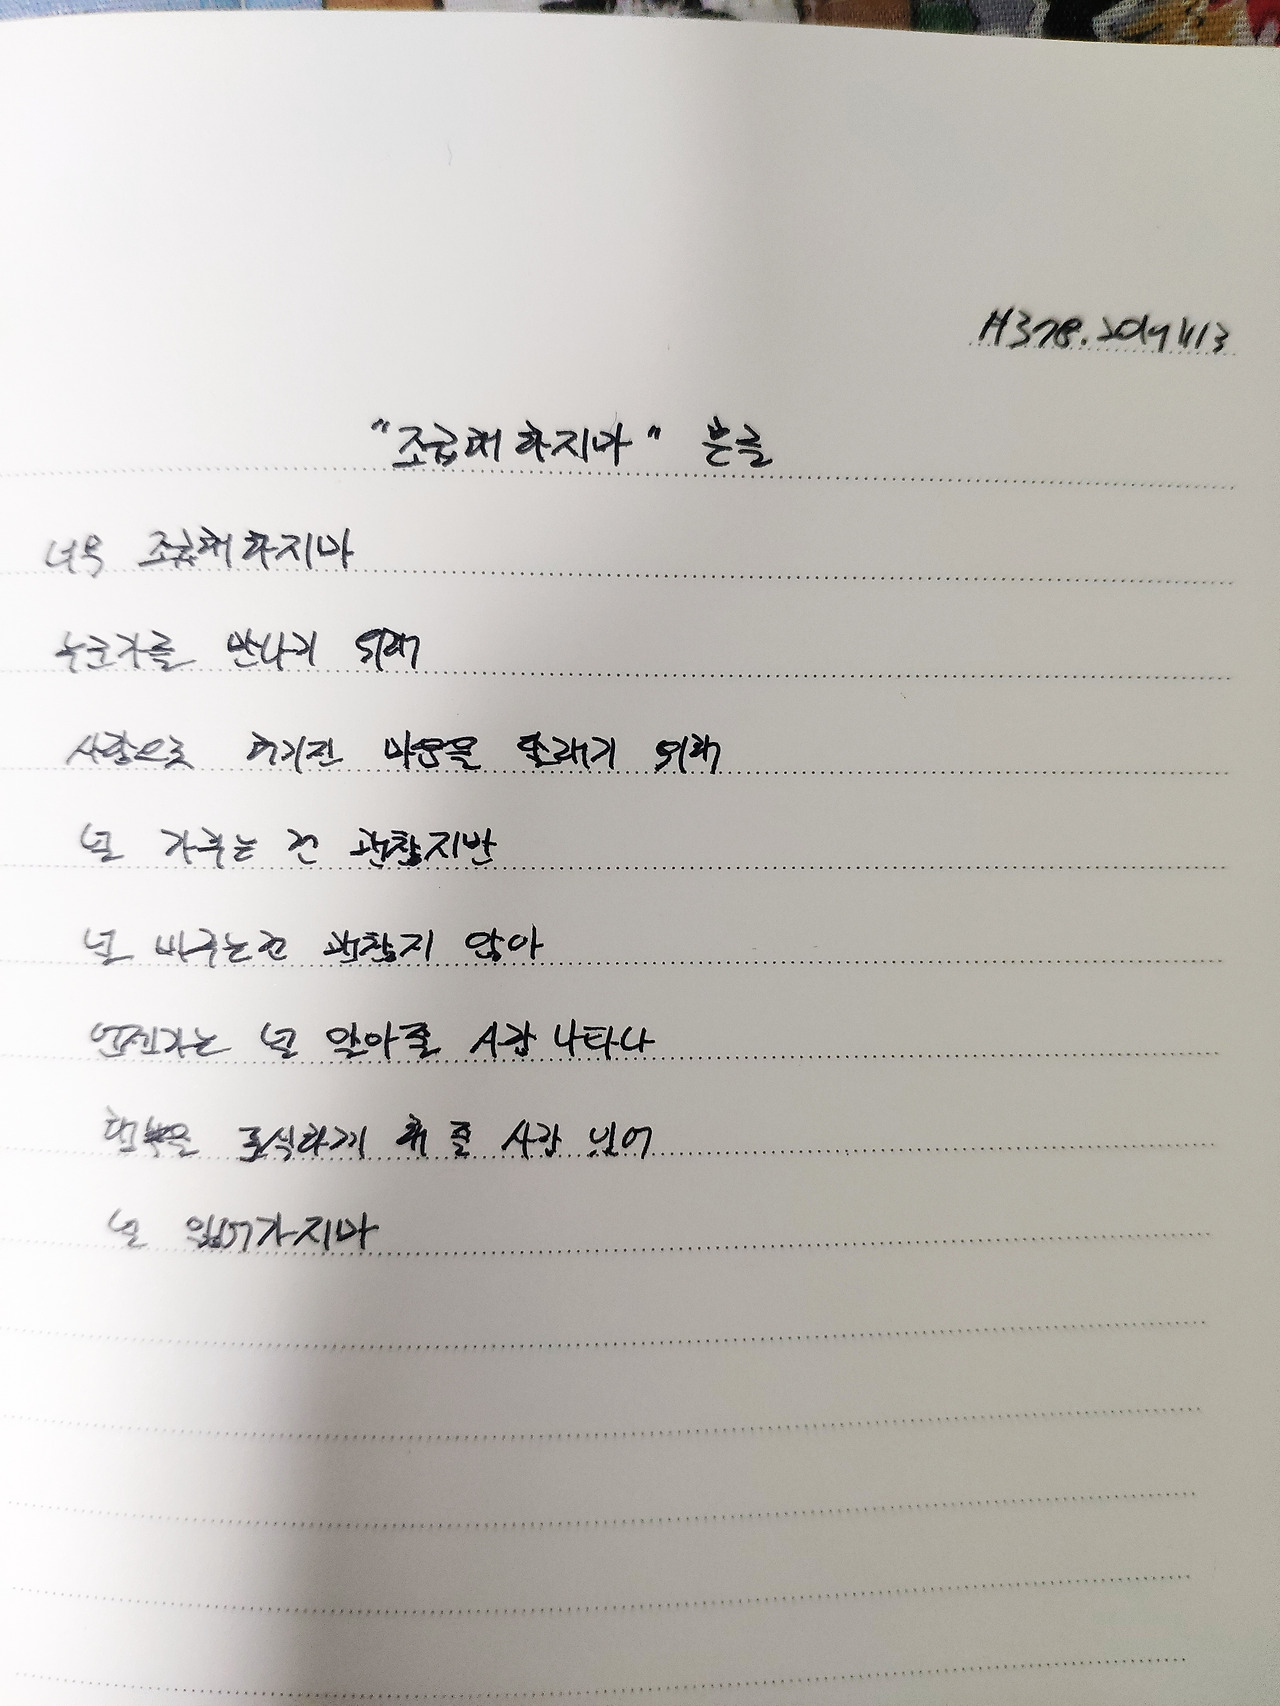 H378.2019 1113
"조급해 하지마" 흔글
너무 조급해 하지마
누군가를 만나기 위해
사랑으로 어기진 마음을 달래기 위해
널 가꾸는 건 괜찮지만
널 바꾸는건 괜찮지 않아
언젠가는 널 알아줄 사람 나타나
행복을 표식하게 해 줄 사람 있어
널 잃어가지마